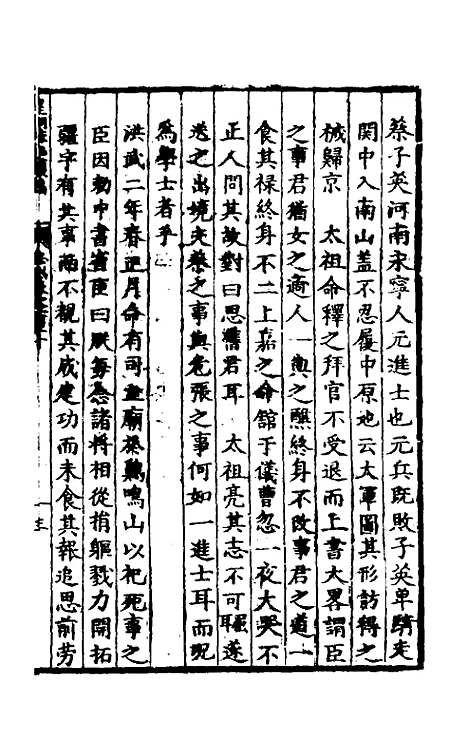 蔡子英河南永寧人元進士也元兵既敗子英单騎走
関中入南山盖不忍履中原地云大軍圖其形訪得之
械歸京　太祖命釋之拜官不受退而上書太畧謂臣
之事君猶女之適人一與之醮終身不改事君之道一
食其禄終身不二上嘉之命舘于儀曹忽一夜大哭不
正人問其故對曰思舊君耳　太祖亮其志不可
遂之出境夫蔡之事與危張之事何如一進士耳而况
為學士者乎
洪武二年春正月命有司立廟於鷄鳴山以祀死事之
臣因勑中書省臣曰朕每念諸将相從捐軀戮力開拓
疆宇有共事而不覩其成建功而未食其報追思前劳